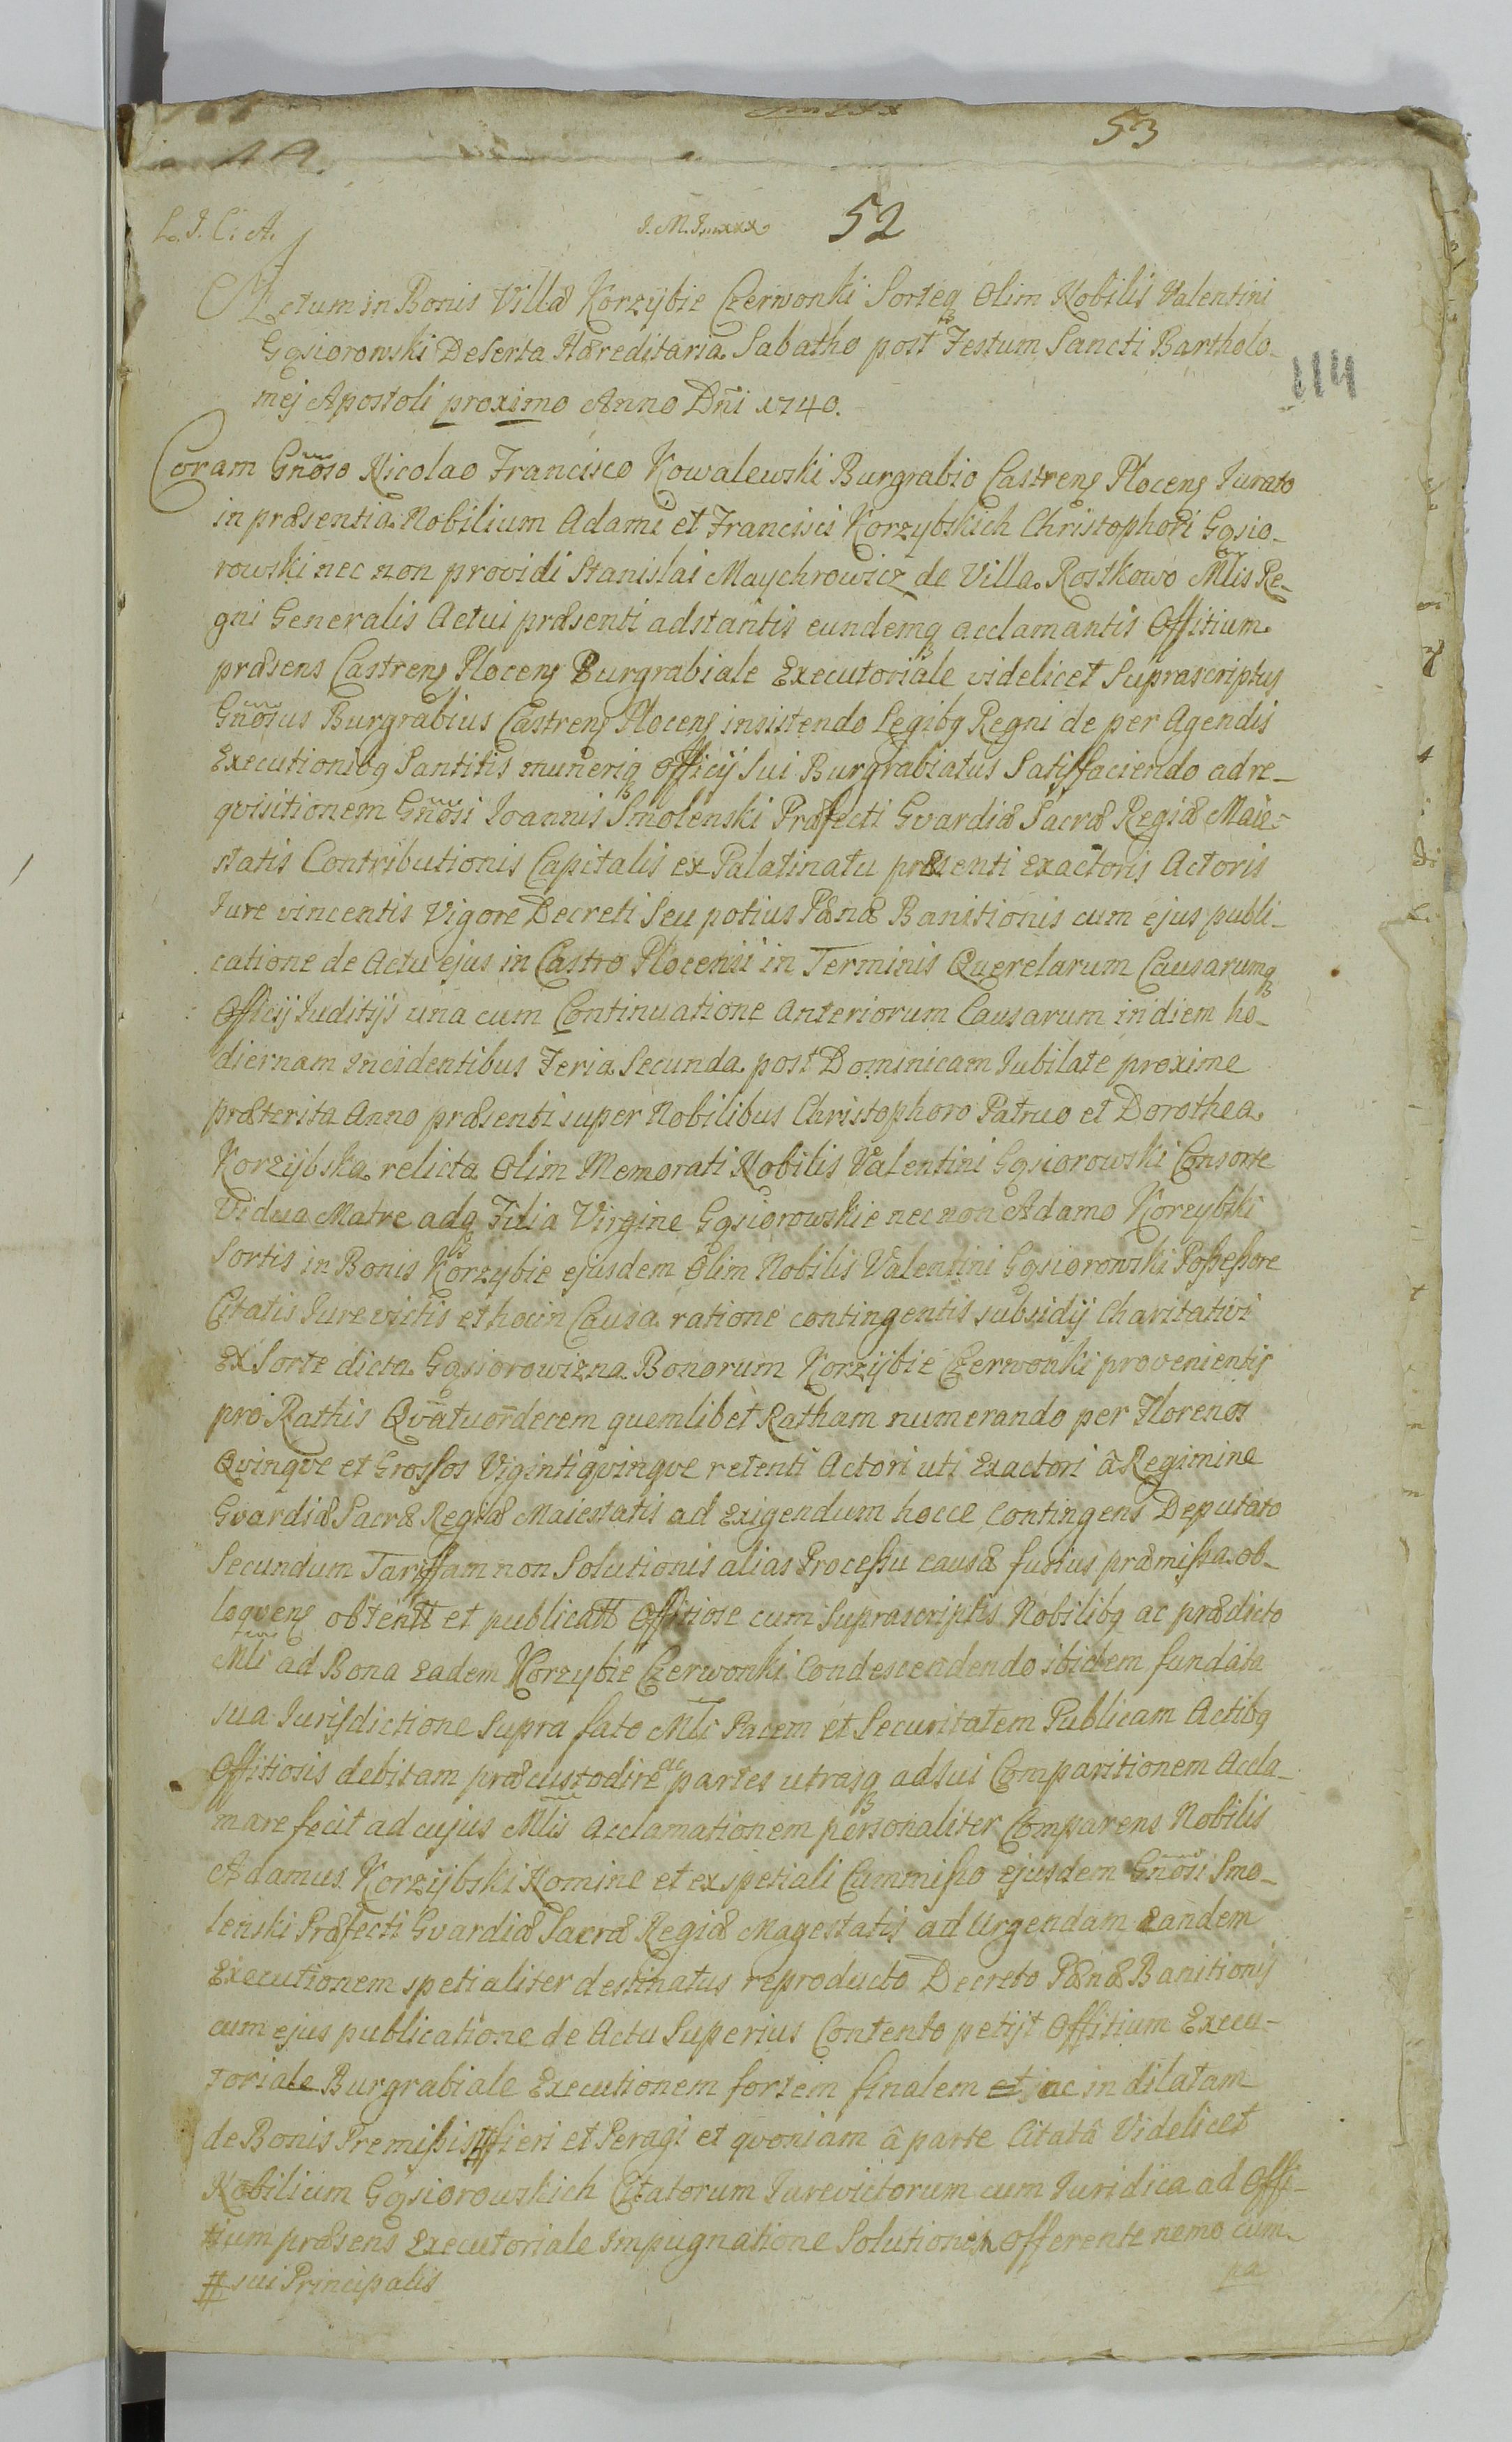 53
52
L. I. C. A.
114
Actum in Bonis Villæ Korzybie Czerwonki Sorteq Olim Nobilis Valentini
Gąsiorowski Deserta Hæreditaria Sabatho post Festum Sancti Bartholo-
mej Apostoli proximo Anno Dñi 1740.
Coram Gñoso Nicolao Francisco Kowalewski Burgrabio Castrens Plocens Iurato
in præsentia Nobilium Adami et Francisci Korzybskich Christophori Gąsio-
rowski nec non providi Stanislai Maychrowicz de Villa Rostkowo Mlis Re-
gni Generalis Actui præsenti adstantis eundemq acclamantis Offitium
præsens Castrens Plocens Burgrabiale Executoriale videlicet Suprascriptus
Gñosus Burgrabius Castrens Plocens insistendo Legibq Regni de per Agendis
Executionibq Santitis muneriq Officij Sui Burgrabiatus Satisfaciendo ad re-
qvisitionem Gñosi Ioannis Smolenski Præfecti Gvardiæ Sacræ Regiæ Maie-
statis Contributionis Capitalis ex Palatinatu præsenti Exactoris Actoris
Iure vincentis Vigore Decreti Seu potius Pænæ Banitionis cum ejus publi-
catione de Actu ejus in Castro Plocensi in Terminis Querelarum Causarumq
Officij Iuditijs una cum Continuatione Anteriorum Causarum in diem ho-
diernam incidentibus Feria Secunda post Dominicam Iubilate proxime
præterita Anno præsenti super Nobilibus Christophoro Patruo et Dorothea
Korzybska relicta Olim Memorati Nobilis Valentini Gąsiorowski Consorte
Vidua Matre adq Filia Virgine Gąsiorowskie nec non Adamo Korzybski
Sortis in Bonis Korzybie ejusdem Olim Nobilis Valentini Gąsiorowski Poßeßore
Citatis Iure victis et hocin Causa ratione contingentis subsidij Charitativi
Ex Sorte dicta Gąsiorowizna Bonorum Korzybie Czerwonki provenientis
pro Rathis Qvatuordecem quemlibet Ratham numerando per Florenos
Qvinqve et Grossos Viginti qvinqve retenti Actori uti Exactori â Regimine
Gvardiæ Sacræ Regiæ Maiestatis ad Exigendum hocce Contingens Deputato
Secundum Tariffam non Solutionis alias Proceßu causæ fusius præmißa ob-
loqvens obtentt et publicatt Offitiose cum Suprascriptis Nobilibq ac prædicto
Mli ad Bona Eadem Korzybie Czerwonki Condescendendo ibidem fundata
sua Iurisdictione Supra fato Mli Pacem et Securitatem Publicam Actibq
Offitiosis debitam præcustodire ac partes utrasq ad sui Comparitionem Accla-
mare fecit ad cujus Mlis Acclamationem personaliter Comparens Nobilis
Adamus Korzybski Nomine et ex spetiali Cummißo ejusdem Gñosi Smo-
lenski Præfecti Gvardiæ Sacræ Regiæ Magestatis ad Urgendam Eandem
Executionem spetialiter destinatus reproducto Decreto Pænæ Banitionis
cum ejus publicatione de Actu Superius Contento petijt Offitium Execu-
toriale Burgrabiale Executionem fortem finalem et ac in dilatam
de Bonis Premißis # fieri et Peragi et qvoniam â parte Citatâ Videlicet
Nobilium Gąsiorowskich Citatorum Iurevictorum cum Iuridica ad Offi-
tium præsens Executoriale Impugnatione Solutionis offerente nemo cum-
# sui Principalis
pa